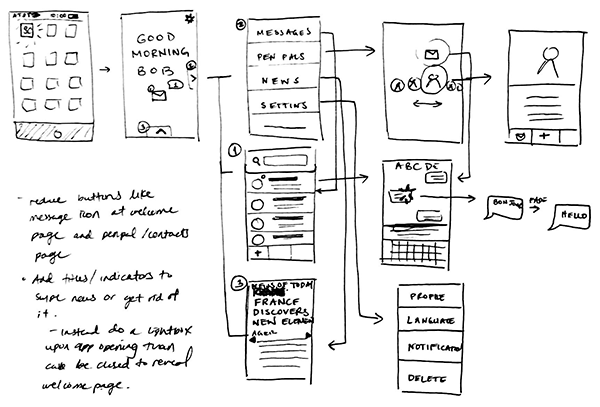 AT&T 1:00
GOOD
MORNING
BOB
2
1
3
2
MESSAGES
PEN PALS
NEWS
SETTINS
1
ABCDE
BONJOUR
FADE
HELLO
3
NEWS OF TODAY
FRANCE
DISCOVERS
NEW ELEMEN
PROFILE
LANGUAGE
NOTIFICATIO
DELETE
- reduce buttons like
message icon at welcome
page and penpal/contacts
page
• Add titles/indicators to
swipe news or get rid of
it.
- instead do a lightbox
upon app opening that
can be closed to reveal
welcome page.